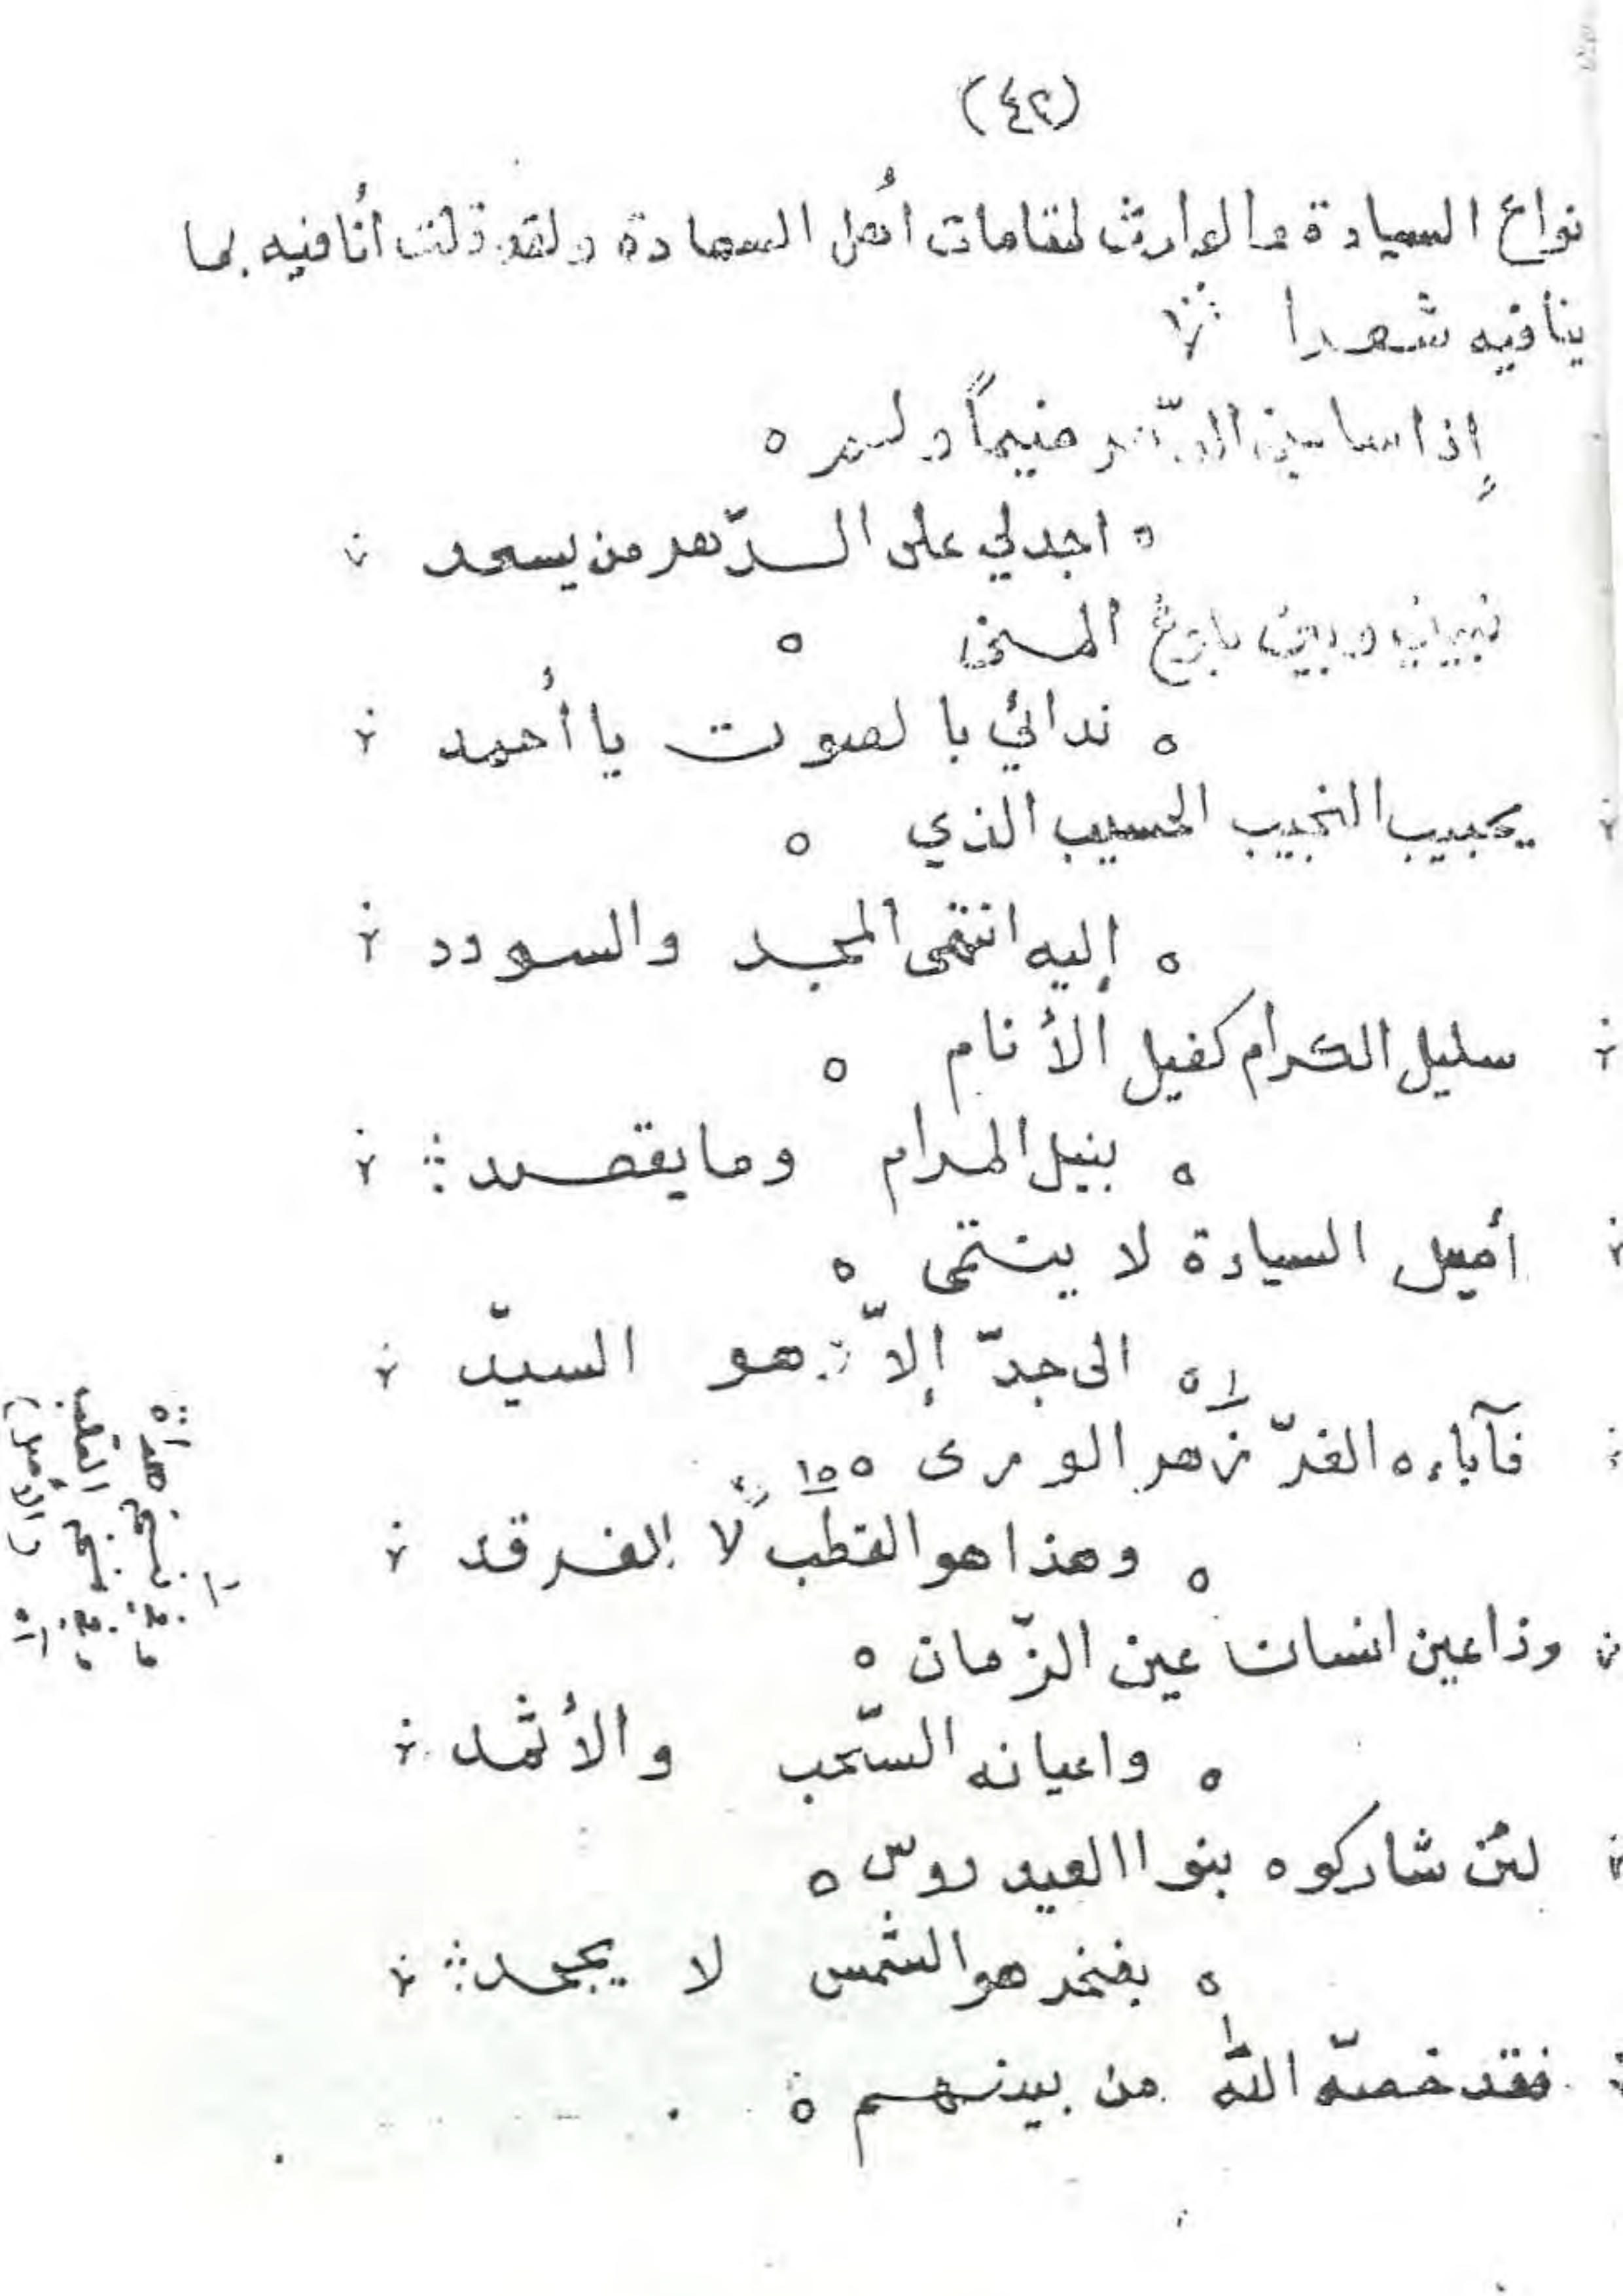 (٤٢)
نواع السيادة والوارث لمقامات أهل السعادة ولقد قلت أنا فيه بما
ينافيه شعرا
إذا سامني الدّهر ضيماً ولم
اجد لي على الدّهر من يسعد
فبيني وبين بلوغ المنى
ندائي بالصوت يا أحمد
يجيب النجيب الحسيب الذي
إليه انتهى المجد والسودد
سليل الكرام كفيل الأنام
بنيل المرام وما يقصد
أصيل السيادة لا ينتمى
الى جدّ إلاّ هو السيّد
فآباءه الغرّ زهر الورى
وهذا هو القطب لا الفرقد
وذا عين انسان عين الزّمان
واعيانه السّحب والأثمد
لئن شاركوه بنوا العيدروس
بفخر هو الشمس لا يجحد
فقد خصّه الله من بينهم